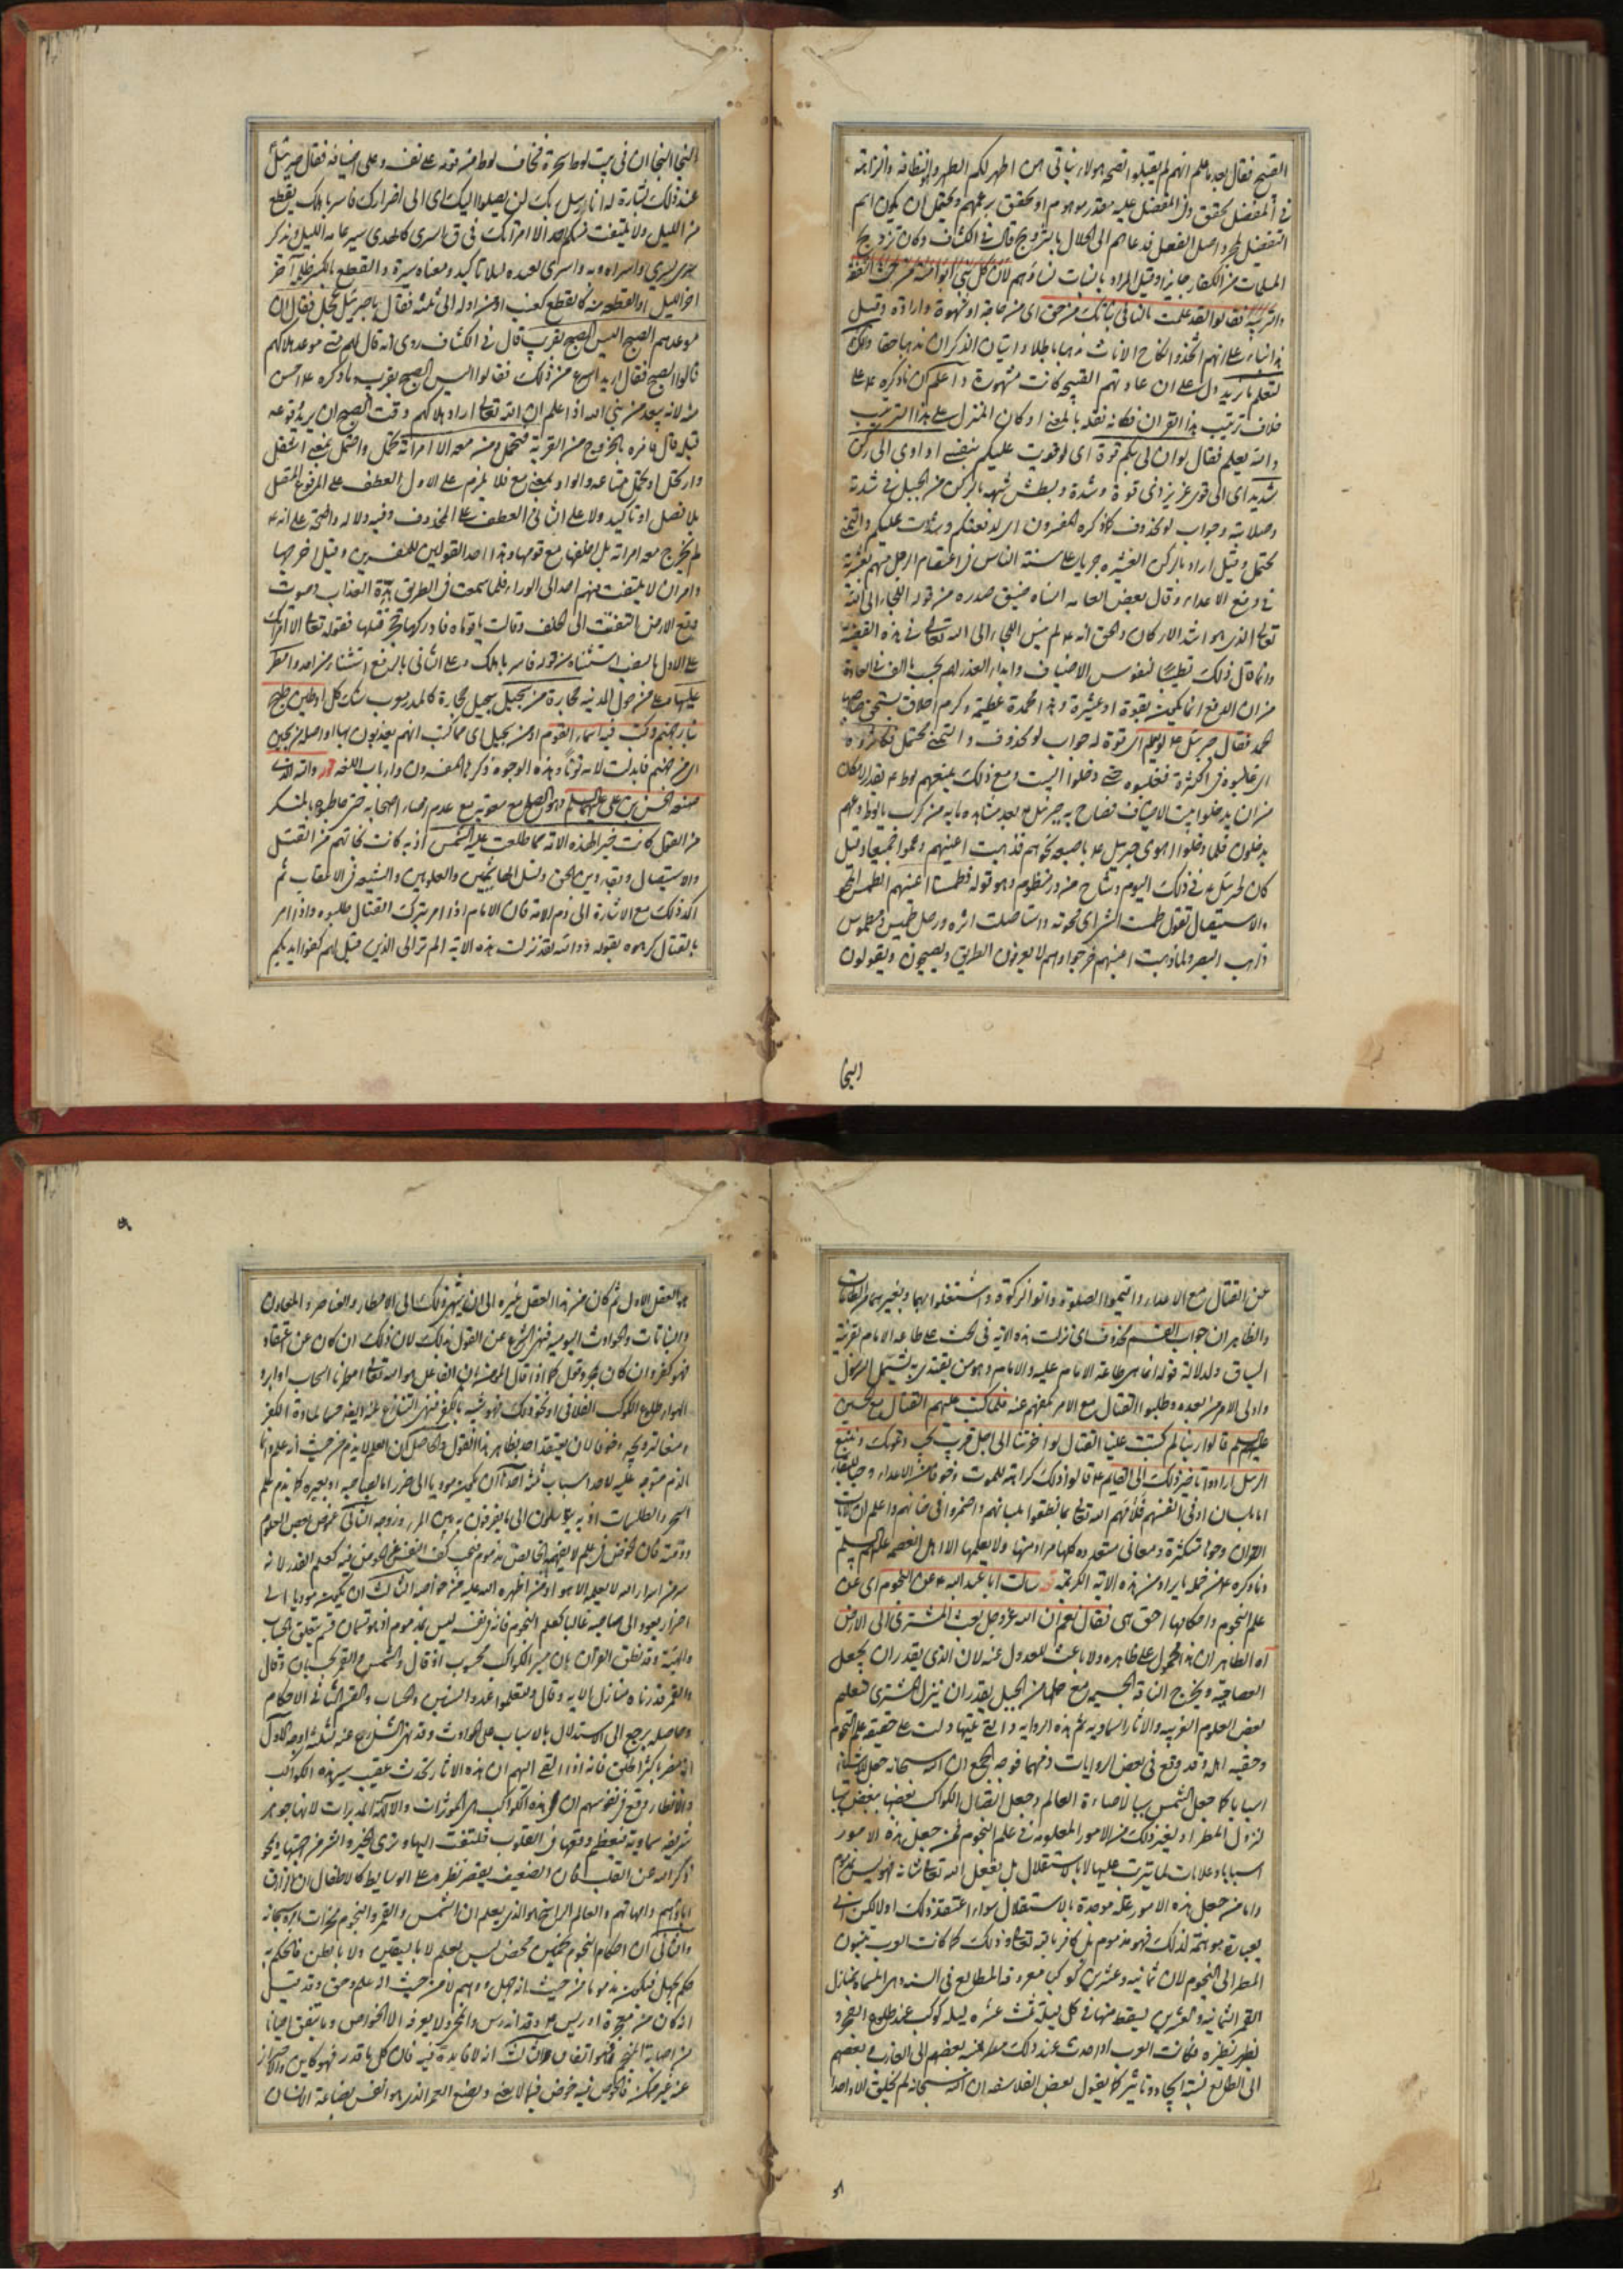 القبيح فقال بعد ما علم انهم لم يقبلوا نصحه هولاء بناتى هن اطهر لكم الطهر والنظافة والنزاهة
فى المفضل محقق وفى المفضل عليه مقدر موهوم او محقق بزعمهم ويحتمل ان يكون اسم
التفضيل لمجرد اصل الفعل فدعاهم الى الحلال بالتزويج قال فى الكشاف وكان تزويج
المسلمات من الكفار جايزا وقيل المراد بالبنات نساؤهم لان كل نبى ابو امته من حيث الشفقة
والتربية فقالوا لقد علمت ما لنا فى بناتك من حق اى من حاجة او شهوة وارادة وقيل
لتعلم ما نريد دل على ان عادتهم القبيحة كانت مشهورة واعلم ان ما ذكره ع على
خلاف ترتيب هذا القران فكانه نقله بالمعنى او كان المنزل على هذا الترتيب
والله يعلم فقال لو ان لى بكم قوة اى لو قويت عليكم بنفسى او اوى الى ركن
شديد اى الى قوى عزيز ذى قوة وشدة وبطش شبهه بالركن من الجبل فى شدته
وصلابته وجواب لو محذوف كما ذكره المفسرون اى لدفعتكم وسورت عليكم والتمنى
محتمل وقيل اراد بالركن العشيرة جريا على سنة الناس فى اعتصام الرجل منهم بعشيرته
فى دفع الاعداء وقال بعض العامة انساه ضيق صدره من قومه اللجاء الى الله
تعالى الذى هو اشد الاركان والحق انه ع لم ينس اللجاء الى الله تعالى فى هذه القضية
وانما قال ذلك تطييبا لنفوس الاضياف وابداء العذر لهم بحسب ما الف فى العادة
من ان الدفع انما يكون بقوة او عشيرة وهذا محمدة عظيمة وكرم اخلاق يستحق صاحبها
الحمد فقال جبرئيل ع لو يعلم اى قوة له جواب لو محذوف والتمنى محتمل فكاثروه
اى غالبوه فى الكثرة فغلبوه حتى دخلوا البيت ومع ذلك يمنعهم لوط ع بقدر الامكان
من ان يدخلوا بيت الاضياف فصاح به جبرئيل ع بعد مشاهدة ما به من كرب يا لوط دعهم
يدخلون فلما دخلوا اهوى جبرئيل ع باصبعه نحوهم فذهبت اعينهم وعموا جميعا وقيل
كان لجبرئيل ع فى ذلك اليوم وشاح من در منظوم وهو قوله فطمسنا اعينهم الطمس المحو
والاستيصال تقول طمست الشئ اى محوته واستاصلت اثره ورجل طميس ومطموس
ذاهب البصر ولما ذهبت اعينهم خرجوا وهم لا يعرفون الطريق ويصيحون ويقولون
النجا
النجا النجا ان فى بيت لوط سحرة فخاف لوط من قومه على نفسه وعلى اضيافه فقال جبرئيل
عند ذلك بشارة له انا رسل ربك لن يصلوا اليك اى الى اضرارك فاسر باهلك بقطع
من الليل ولا يلتفت منكم احد الا امراتك فى ق باسرى كالهدى سير عامة الليل ويذكر
سرى يسرى واسراه وبه واسرى بعبده ليلا تاكيد ومعناه سيره والقطع بالكسر ظلمة آخر
اخر الليل او القطعة منه كالقطع كعنب او من اوله الى ثلثه فقال يا جبرئيل عجل فقال ان
موعدهم الصبح اليس الصبح بقريب قال فى الكشاف روى انه قال لهم متى موعد هلاكهم
قالوا الصبح فقال اريد اسرع من ذلك فقالوا اليس الصبح بقريب وما ذكره ع احسن
منه لانه يبعد من نبى الله اذا علم ان الله تعالى اراد هلاكهم وقت الصبح ان يريد وقوعه
قبله قال فامره بالخروج من القرية فتحمل ومن معه الا امراته تحمل واحتمل بمعنى انتقل
بلا فصل او تاكيد ولا على الثانى العطف على المحذوف وفيه دلالة واضحة على انه ع
لم يخرج معه امراته بل خلفها مع قومها وهذا احد القولين للمفسرين وقيل اخرجها
وامر ان لا يلتفت منهم احد الى الوراء فلما سمعت فى الطريق هدة العذاب وصوت
وقع الارض التفتت الى الخلف وقالت يا قوماه فادركها حجر فقتلها فقوله تعالى الا امراتك
على الاول بالنصب استثناء من قوله فاسر باهلك وعلى الثانى بالرفع استثناء من احد وامطر
عليها وعلى من حول المدينة حجارة من سجيل سجيل حجارة كالمدر معرب سنك كل او طين طبخ
بنار جهنم وكتب فيه اسماء القوم او من سجيل اى مما كتب انهم يعذبون بها او اصله من سجين
اى من جهنم فابدلت لامه نونا وهذه الوجوه ذكرها المفسرون وارباب اللغة قوله والله الذى
صنعه الحسن بن على عليهما السلم وهو الصلح مع معوية مع عدم رضاء اصحابه حتى خاطبوه بالمنكر
من القول كانت خيرا لهذه الامة مما طلعت عليه الشمس اذ به كانت نجاتهم من القتل
والاستيصال وبقاء دين الحق ونسل الهاشميين والعلويين والشيعة فى الاعقاب ثم
اكد ذلك مع الاشارة الى ذم الامة فان الامام اذا امر بترك القتال طلبوه واذا امر
بالقتال كرهوه بقوله ووالله لقد نزلت هذه الاية الم تر الى الذين قيل لهم كفوا ايديكم
عن القتال مع الاعداء واقيموا الصلوة واتوا الزكوة واشتغلوا بهما وبغيرهما من الطاعات
والظاهر ان جواب القسم محذوف اى نزلت هذه الاية فى الحث على طاعة الامام بقرينة
السياق ولدلالة قوله انما هى طاعة الامام عليه والامام وهو من يقتدى به يشمل الرسول
واولى الامر من بعده وطلبوا القتال مع الامر بكفهم عنه فلما كتب عليهم القتال مع الحسين
عليه السلم قالوا ربنا لم كتبت علينا القتال لولا اخرتنا الى اجل قريب نجب دعوتك ونتبع
الرسل ارادوا تاخير ذلك الى القايم ع قالوا ذلك كراهة للموت وخوفا من الاعداء وحبا للبقاء
القران وجوها متكثرة ومعانى متعددة كلها مراد منها ولا يعلمها الا اهل العصمة عليهم السلم
وما ذكره ع من جملة ما يراد من هذه الاية الكريمة قوله سالت ابا عبد الله ع عن النجوم اى عن
علم النجوم واحكامها احق هى فقال نعم ان الله عز وجل بعث المشترى الى الارض
اه الظاهر ان هذا محمول على ظاهره ولا باعث للعدول عنه لان الذى يقدر ان يجعل
العصا حية ويخرج الناقة الجسيمة مع حملها من الجبل يقدر ان ينزل المشترى فتعلم
بعض العلوم الغريبة والاثار السماوية ثم هذه الرواية والتى تليها دلت على حقيقة علم النجوم
وحقية اهله وقد وقع فى بعض الروايات ذمهما فوجه الجمع ان الله سبحانه جعل للاشياء
اسبابا كما جعل الشمس سببا لاضاءة العالم وجعل اتصال الكواكب بعضها ببعض سببا
لنزول المطر او لغير ذلك من الامور المعلومة فى علم النجوم فمن جعل هذه الامور
اسبابا وعلامات لما تترتب عليها لا بالاستقلال بل بفعل الله تعالى شانه فهو ليس بمذموم
واما من جعل هذه الامور علة موجدة بالاستقلال سواء اعتقد ذلك او لا لكن اتى
بعبارة موهمة لذلك فهو مذموم بل كافر بالله تعالى وذلك كما كانت العرب ينسبون
المطر الى النجوم لان ثمانية وعشرين كوكبا معروفة المطالع فى السنة وهى المسماة بمنازل
القمر الثمانية والعشرين يسقط منها فى كل ليلة ثلث عشرة ليلة كوكب عند طلوع الفجر و
يظهر نظيره فكانت العرب اذا حدث عند ذلك مطر نسبه بعضهم الى الغارب وبعضهم
الى الطالع نسبة ايجاد وتاثير كما يقول بعض الفلاسفة ان الله سبحانه لم يخلق الا واحدا
هو العقل الاول ثم كان من هذا العقل غيره الى ان ينتهى ذلك الى الامطار والعناصر والمعادن
والنباتات والحوادث اليومية فنهى الشرع عن القول بذلك لان ذلك ان كان عن اعتقاد
فهو كفر وان كان مجرد تجمل كما اذا قال المؤمن ان الفاعل هو الله تعالى
الهواء طلوع الكوكب الفلانى او نحو ذلك فهو شبيه بالكفر فنهى الشارع عنه ايضا حسما لمادة الكفر
السحر والطلسمات اذ به يتوسلون الى ما يفرقون به بين المرء وزوجه الثانى غموض بعض العلوم
سر من اسرار الله لا يعلمه الا هو او من اظهره الله عليه من خواصه الثالث ان يكون موديا الى
اضرار يعود الى صاحبه غالبا كعلم النجوم فانه فى نفسه ليس بمذموم اذ هو قسمان قسم يتعلق بالحساب
والهيئة وقد نطق القرآن بان مسير الكواكب محسوب اذ قال والشمس والقمر بحسبان وقال
والقمر قدرناه منازل الاية وقال ولتعلموا عدد السنين والحساب والقسم الثانى الاحكام
وحاصله يرجع الى الاستدلال بالاسباب على الحوادث وقد نهى الشارع عنه لثلثة اوجه الاول
انه مضر باكثر الخلق فانه اذا القى اليهم ان هذه الاثار تحدث عقيب سير هذه الكواكب
والانظار وقع فى نفوسهم ان هذه الكواكب هى الموثرات والالهة المدبرات لانها جواهر
شريفة سماوية فيعظم وقعها فى القلوب فتلتفت اليها وترى الخير والشر من جهتها ويمحو
ذكر الله عن القلب فان الضعيف يقصر نظره على الوسايط كالاطفال
اباؤهم وامهاتهم والعالم الراسخ هو الذى يعلم ان الشمس والقمر والنجوم مسخرات بامره سبحانه
والثانى ان احكام النجوم تخمين محض ليس يعلم لا باليقين ولا بالظن فالحكم به
حكم بجهل فيكون مذموما من حيث انه جهل ووهم لا من حيث انه علم وحق وقد قيل
انه كان من معجزة ادريس ع وقد اندرس وانمحى ولا يعرفه الا الخواص وما يتفق احيانا
من اصابة المنجم فهو اتفاق الثالث انه لا فايدة فيه فان كل ما قدر فهو كاين والاحتراز
عنه غير ممكن فالخوض فيه خوض فيما لا يعنى وتضيع العمر الذى هو انفس بضاعة الانسان